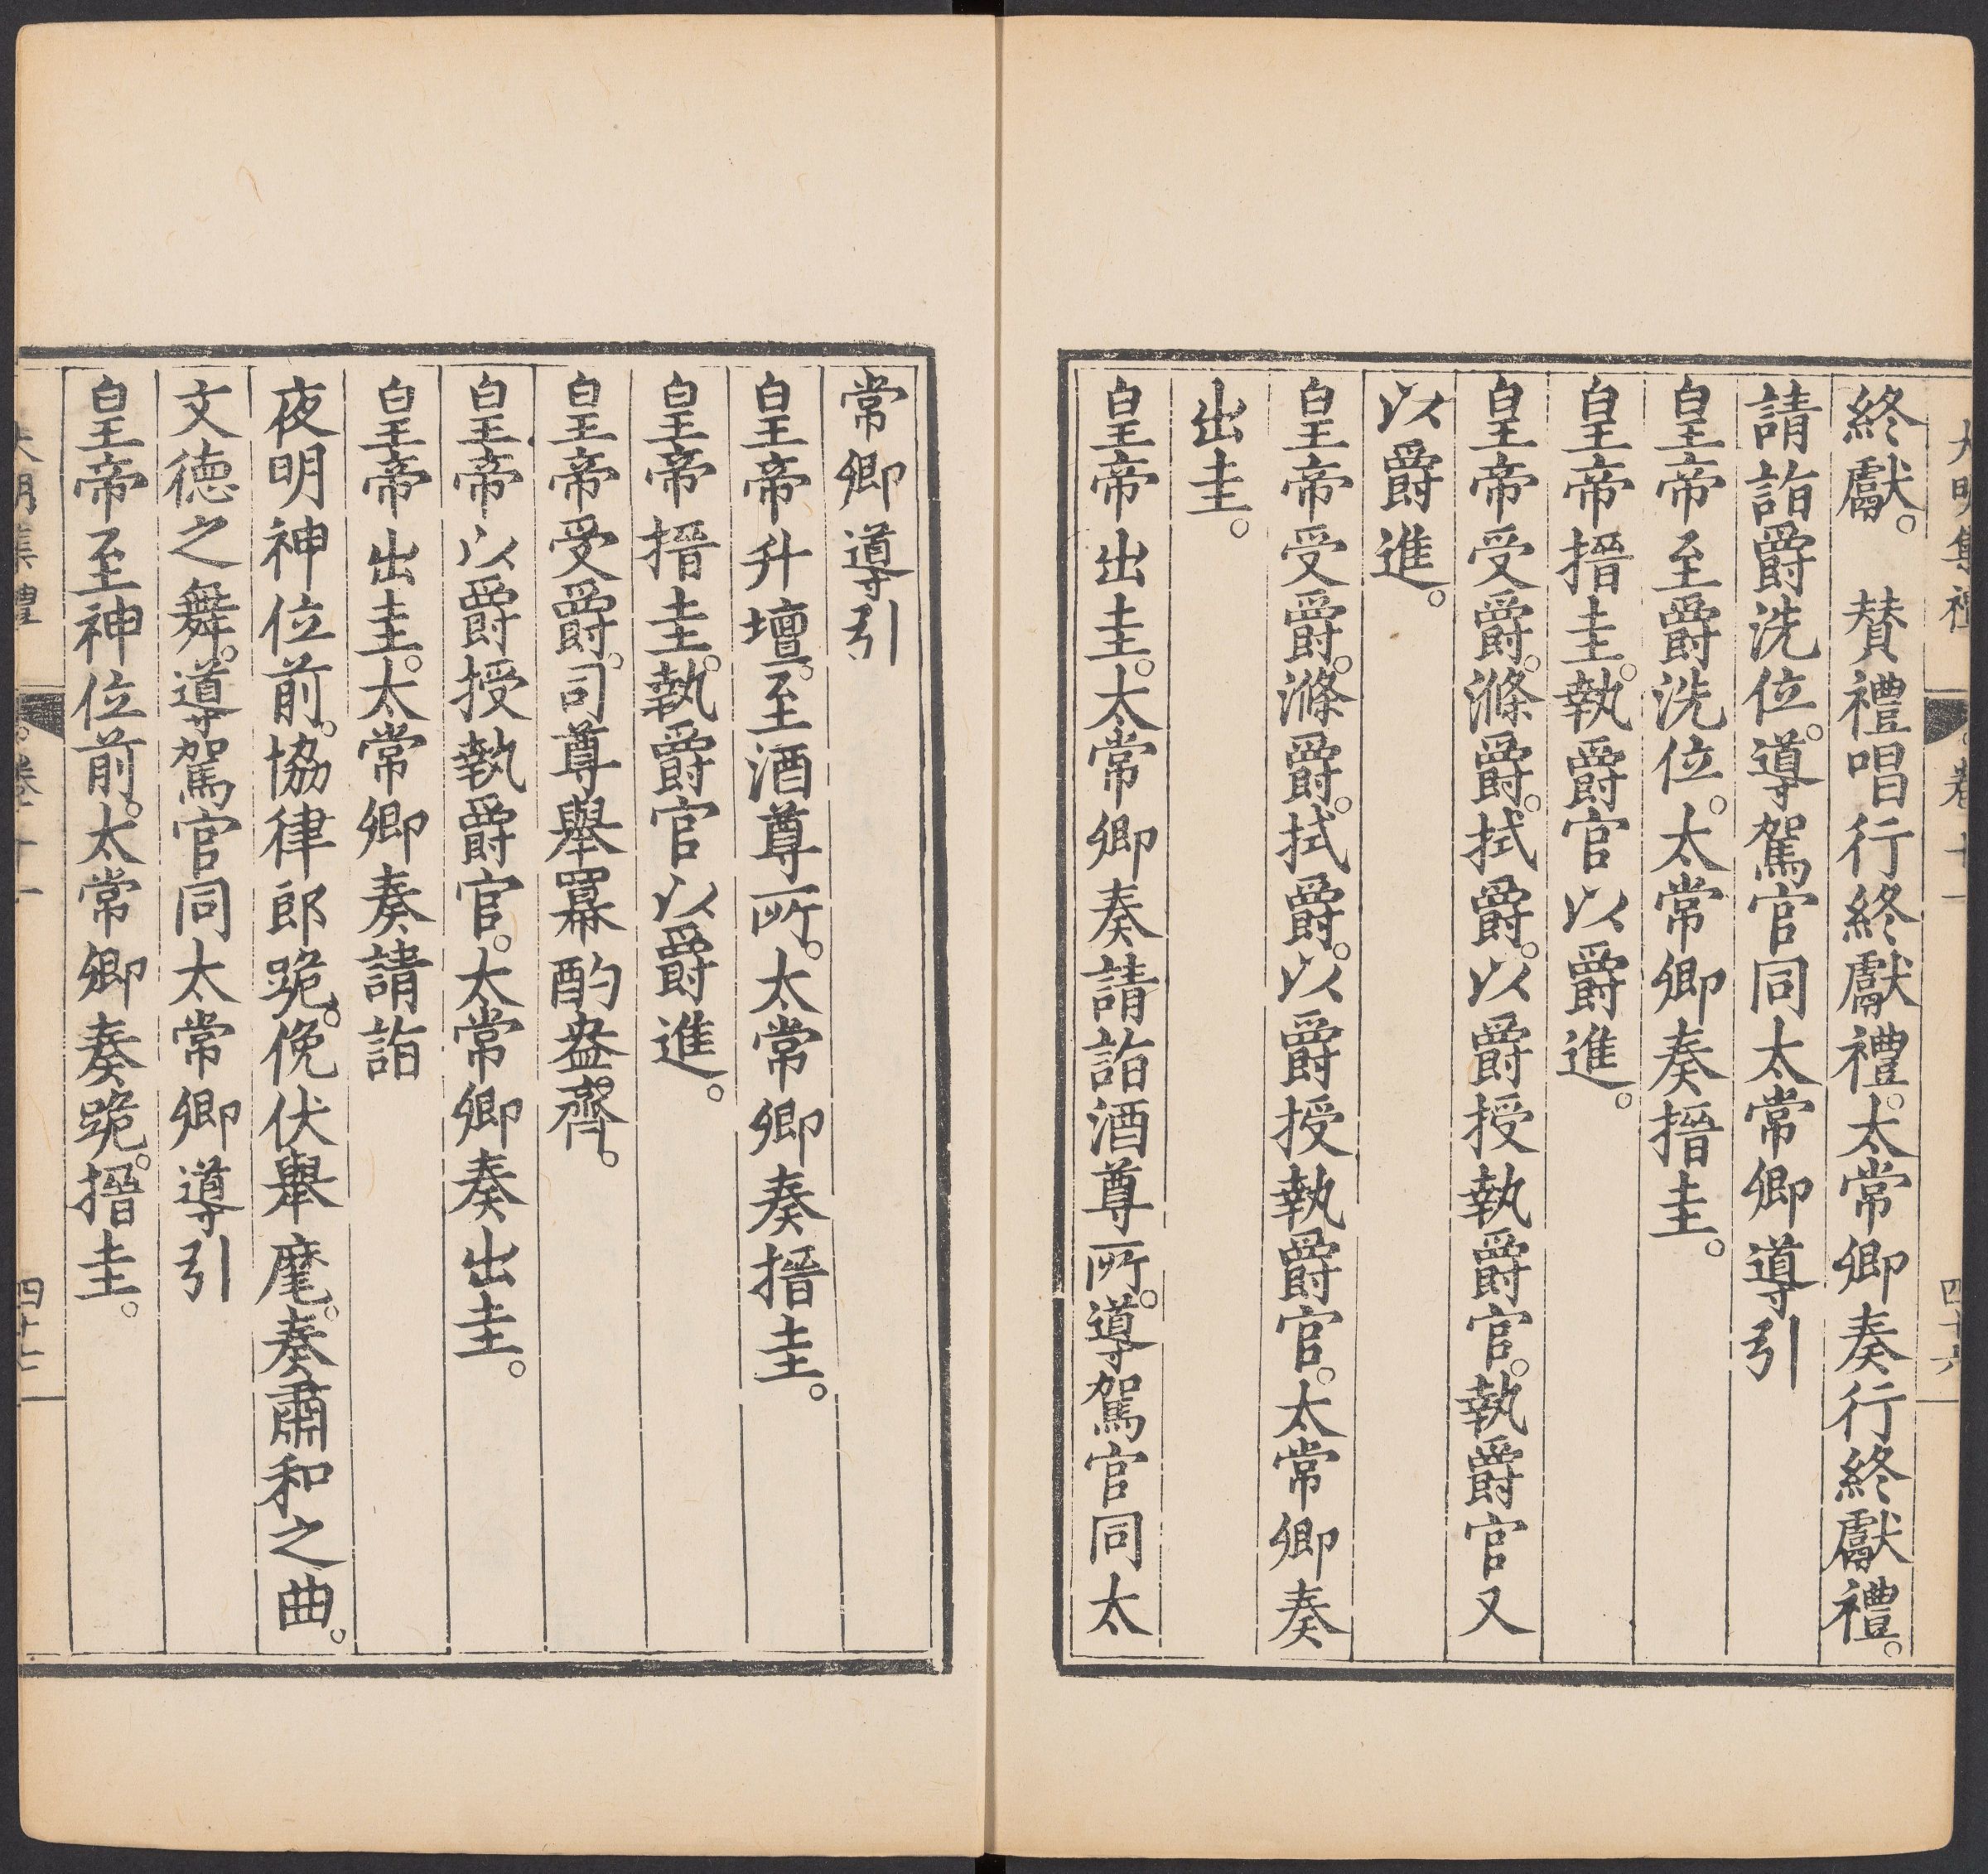 終獻。　贊禮唱行終獻禮。太常卿奏行終獻禮。
請詣爵洗位。導駕官同太常卿導引
皇帝至爵洗位。太常卿奏搢圭。
皇帝搢圭。執爵官以爵進。
皇帝受爵。滌爵。拭爵。以爵授執爵官。執爵官又
以爵進。
皇帝受爵。滌爵。拭爵。以爵授執爵官。太常卿奏
出圭。
皇帝出圭。太常卿奏請詣酒尊所。導駕官同太
常卿導引
皇帝升壇。至酒尊所。太常卿奏搢圭。
皇帝搢圭。執爵官以爵進。
皇帝受爵。司尊舉羃酌盎齊。
皇帝以爵授執爵官。太常卿奏出圭。
皇帝出圭。太常卿奏請詣
夜明神位前。協律郎跪。俛伏舉麾。奏肅和之曲。
文德之舞。導駕官同太常卿導引
皇帝至神位前。太常卿奏跪。搢圭。